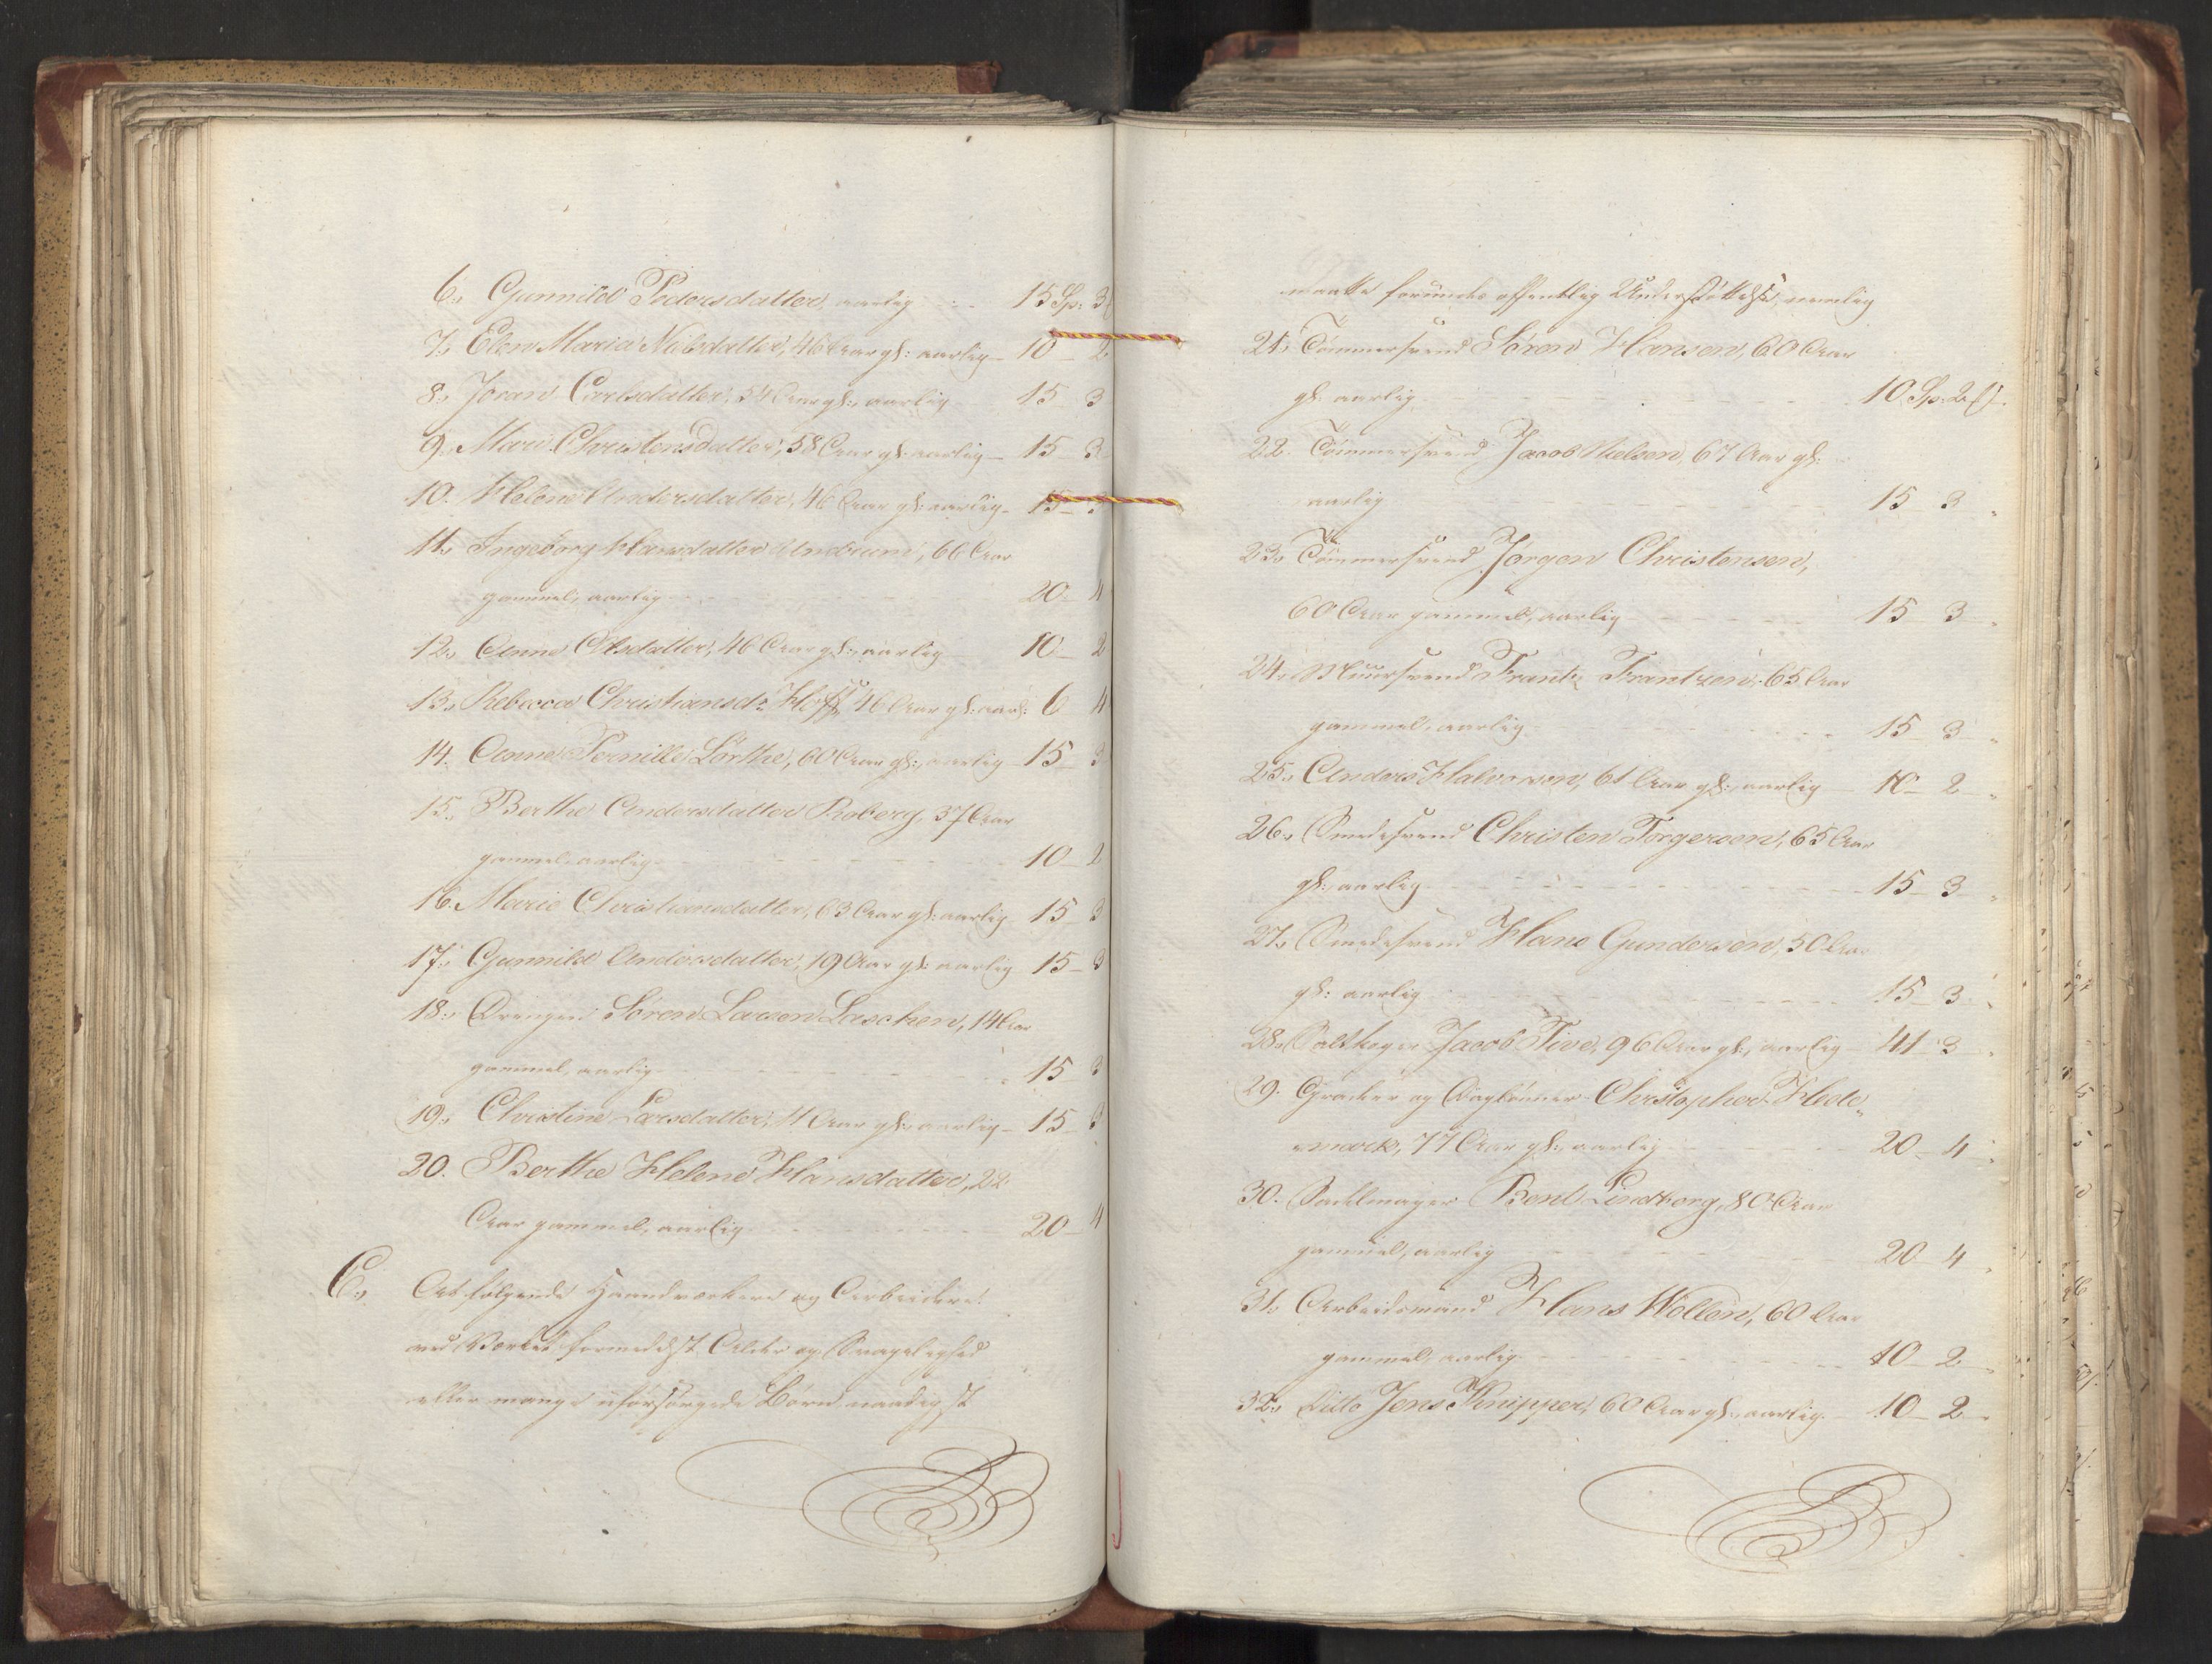 6., Gunnild Pedersdatter, aarlig 15 Sp: 3
7., Elen Maria Nielsdatter, 46 Aar gl: aarlig 10 2
8., Joran Carlsdatter, 54 Aar gl:, aarlig 15 3
9., Mari Christensdatter, 58 Aar gl: aarlig 15 3
10. Helene Andersdatter, 46 Aar gl: aarlig 15 3
11., Ingeborg Hansdatter Undrum, 66 Aar
gammel, aarlig 20 4
12., Anne Olsdatter, 46 Aar gl:, aarlig 10 2
13., Rebecca Christiansdr. Hoff, 46 Aar gl: aarl: 6 4
14. Anne Pernille Lörthe, 60 Aar gl:, aarlig 15 3
15., Berthe Andersdatter Roberg, 37 Aar
gammel aarlig 10 2
16. Marie Christiansdatter, 63 Aar gl: aarlig 15 3
17., Gunnild Andersdatter, 19 Aar gl: aarlig 15 3
18., Drengen Sören Larsen Laschen, 14 Aar
gammel, aarlig 15 3
19., Christine Larsdatter, 11 Aar gl: aarlig 15 3
20. Berthe Helene Hansdatter, 22
Aar gammel, aarlig 20 4
C., At følgende Haandværkere og Arbeidere
ved Værket formedelst Alder og Svagelighed
eller mange uforsørgede Børn naadigst
maatte forundes offentlig Understöttelse, nemlig
21., Tömmersvend Sören Hansen, 60 Aar
gl: aarlig 10 Sp: 2
22. Tömmersvend Jacob Nielsen, 67 Aar gl:
aarlig 15 3
23., Tömmersvend Jörgen Christensen,
60 Aar gammel, aarlig 15 3
24. Muursvend Frantz Frantzen, 65 Aar
gammel, aarlig 15 3
25., Anders Halvorsen, 61 Aar gl:, aarlig 10 2
26., Smedesvend Christen Torgersen, 65 Aar
gl:, aarlig 15 3
27., Smedesvend Hans Gundersen, 50 Aar
gl: aarlig 15 3
28., Saltkoger Jacob Five, 96 Aar gl:, aarlig 41 3
29. Gradeer og Daglönner Christopher Hede-
mark, 77 Aar gl:, aarlig 20 4
30. Sadelmager Bent Lindborg, 80 Aar
gammel, aarlig 20 4
31., Arbeidsmand Hans Wollen, 60 Aar
gammel, aarlig 10 2
32., Ditto Jens Knipper, 60 Aar gl: aarlig 10 2